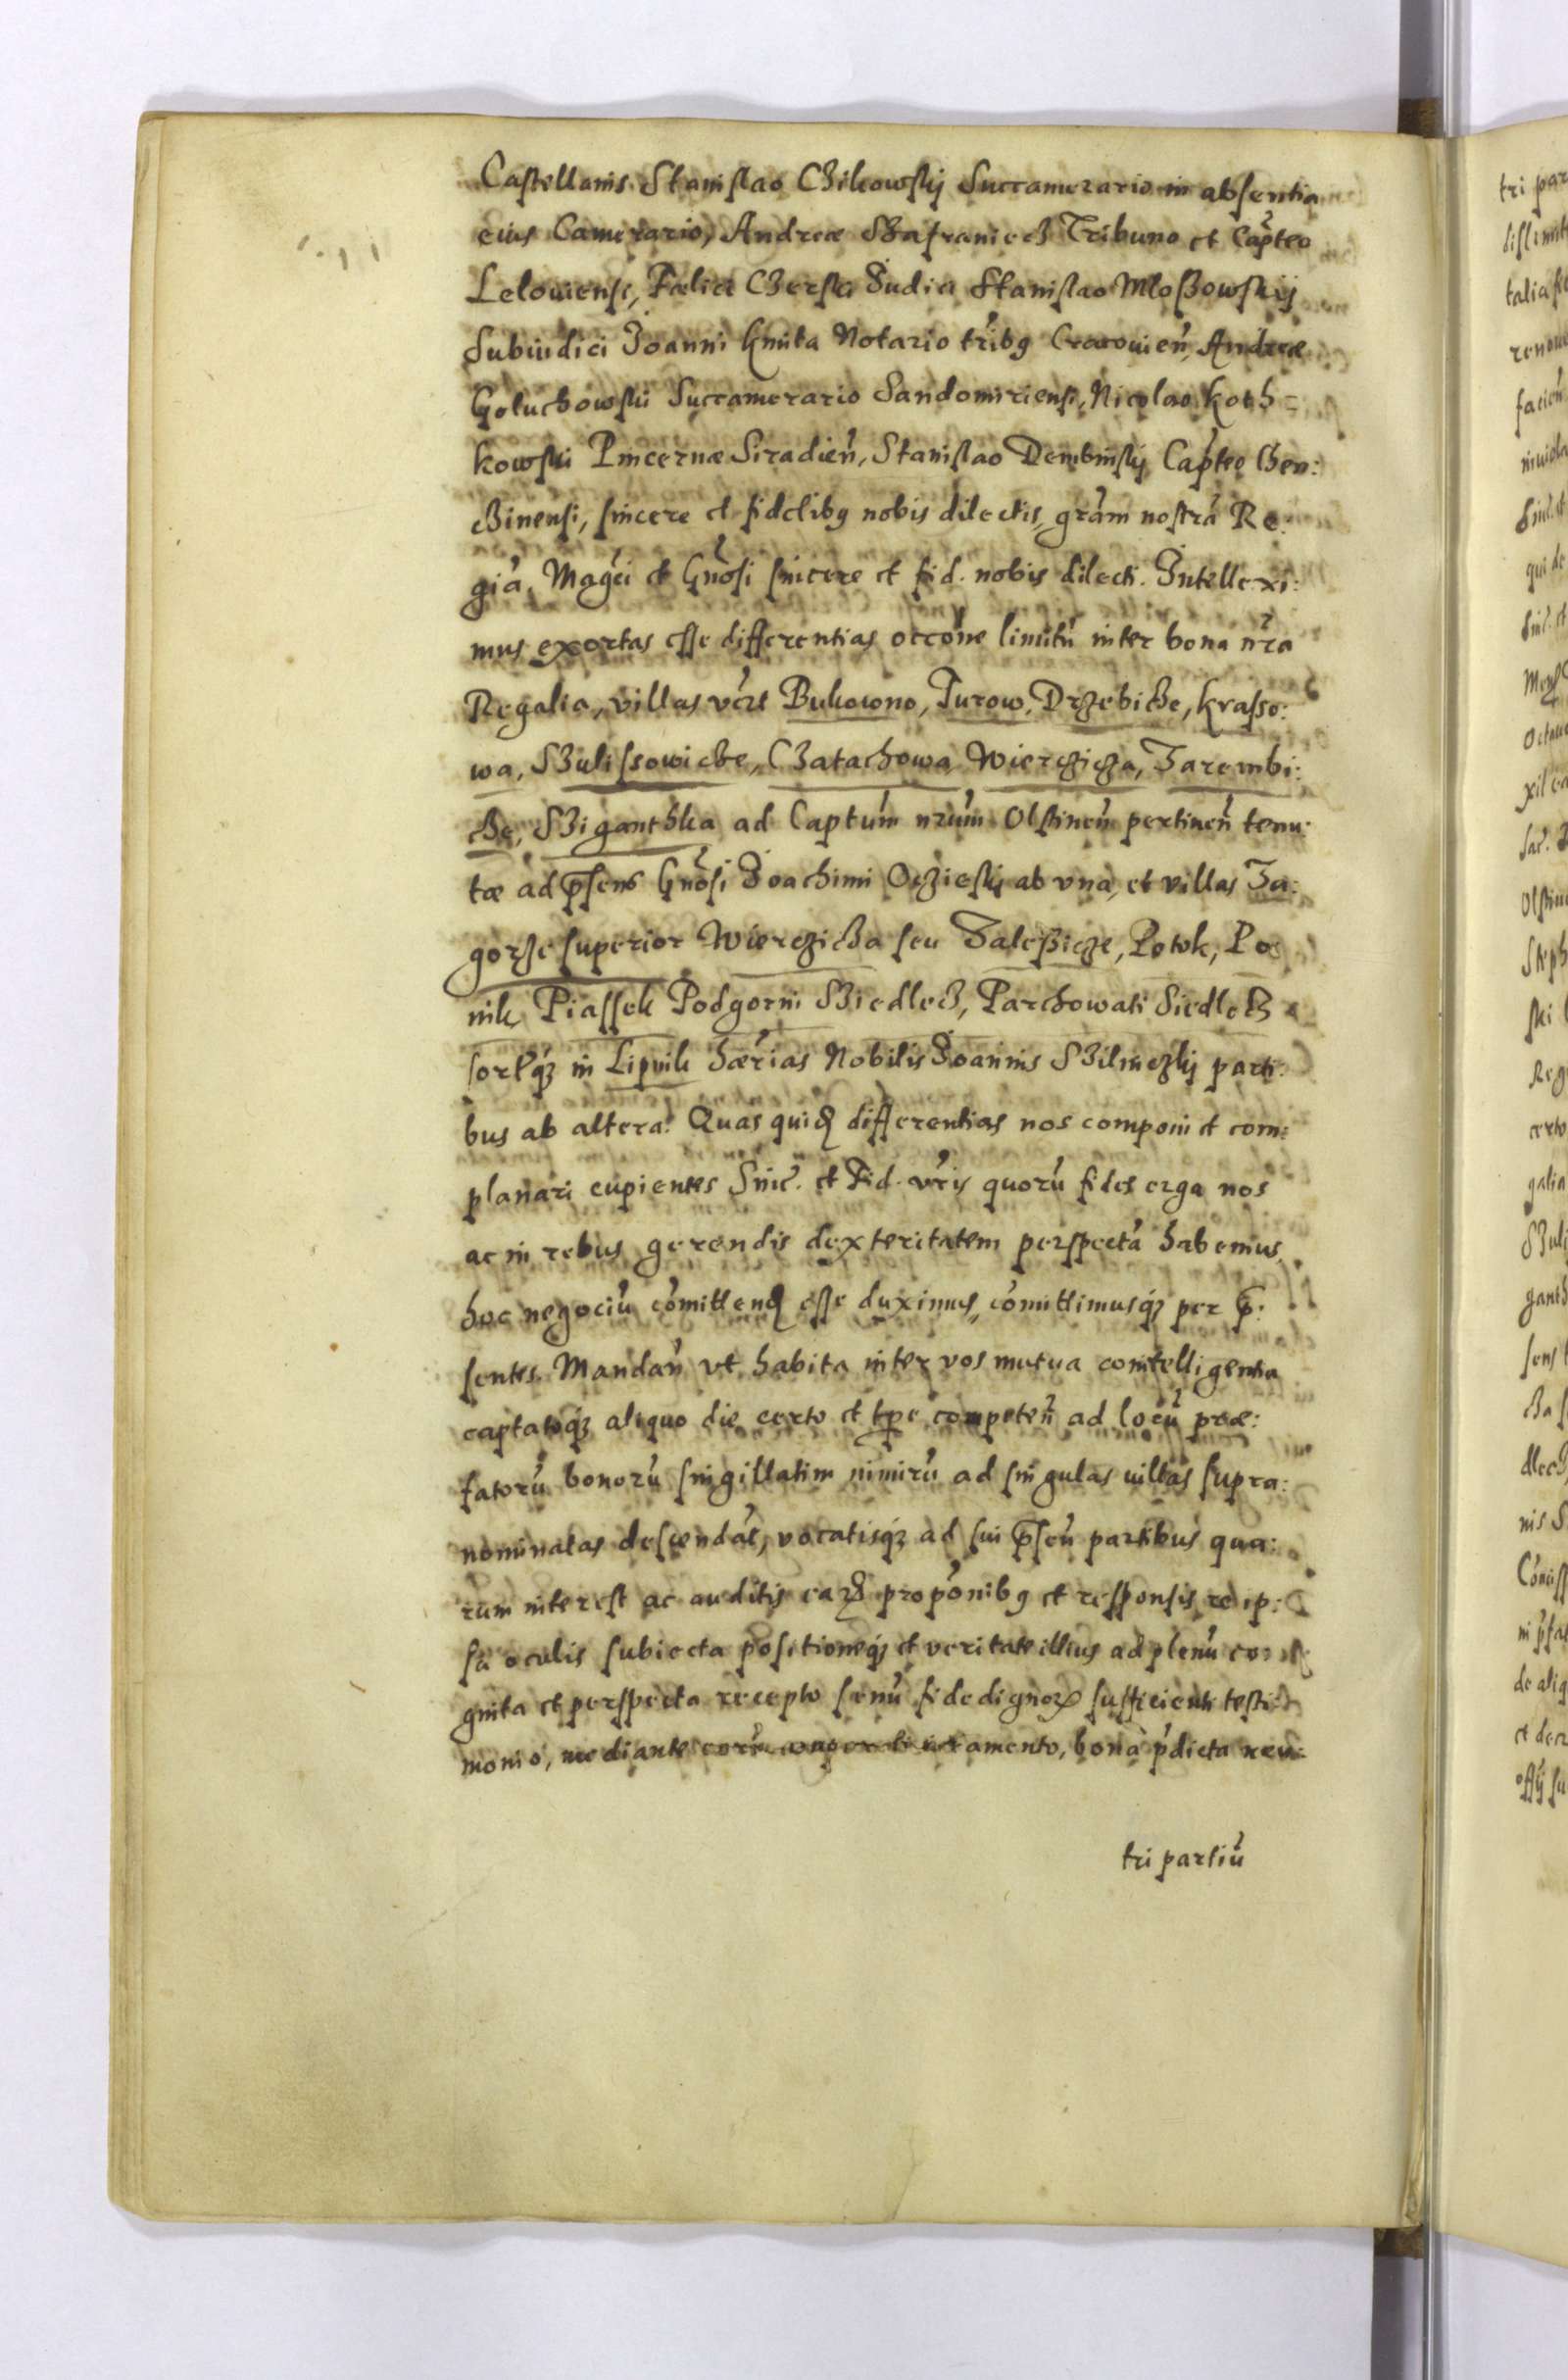 Castellanis. Stanislao Czikowskij Succamerario in absentia
eius Camerario, Andreae Szafraniecz Tribuno et Capteo
Leloviensi, Felici Czerski Judici Stanislao Mloszowskij
Subiudici Joanni Kmita Notario tribq Cracovien, Andreae
Goluchowskii Succamerario Sandomiriensi, Nicolao Koth=
kowski Pincernae Siradien, Stanislao Dembinskij Capteo Ben:
dzinensi, sincere et fidelibq nobis dilectis, gram nostra Re:
gia, Magci et Gnosi sincere et fid. nobis dilecti. Intellexi:
mus exortas esse differentias occone limitu inter bona nra
Regalia, villas vcz Bukowno, Turow, Drzebicze, Krasso:
wa, Szulissowicze, Czatachowa Wierczicza, Zarembi:
cze, Sziganthka ad Captum nrum Olstinen pertinen tenu:
tae ad psens Gnosi Joachimi Oczieskij ab vna, et villas Za:
gorze superior Wierczicza seu Zaleszicze, Potok, Po
nik Piassek Podgorni Sziedlecz, Parchowati Siedlecz
sortqz in Lipnik haerias Nobilis Joannis Szilniczkij parti:
bus ab altera. Quas quid differentias nos componi et com=
planari cupientes Sinc. et Fid. vris quoru fides erga nos
ac in rebus gerendis dexteritatem perspecta habemus,
hoc negociu comittend esse duximus, comittimusqz per p:
sentes. Mandan vt habita inter vos mutua cointelligentia
captatoqz aliquo die certo et tpe competen ad locu prae:
fatoru bonoru singillatim nimiru ad singulas villas supra:
nominatas descendat, vocatisqz ad sui psen partibus qua:
rum interest ac auditis earu proponibq et responsis re ip:
sa oculis subiecta positioneqz et veritate illius ad plenu co:
gnita et perspecta recepto senu fide dignor sufficienti testi:
monio, mediante coru corporali iuramento, bona pdicta neu:
tri partiu